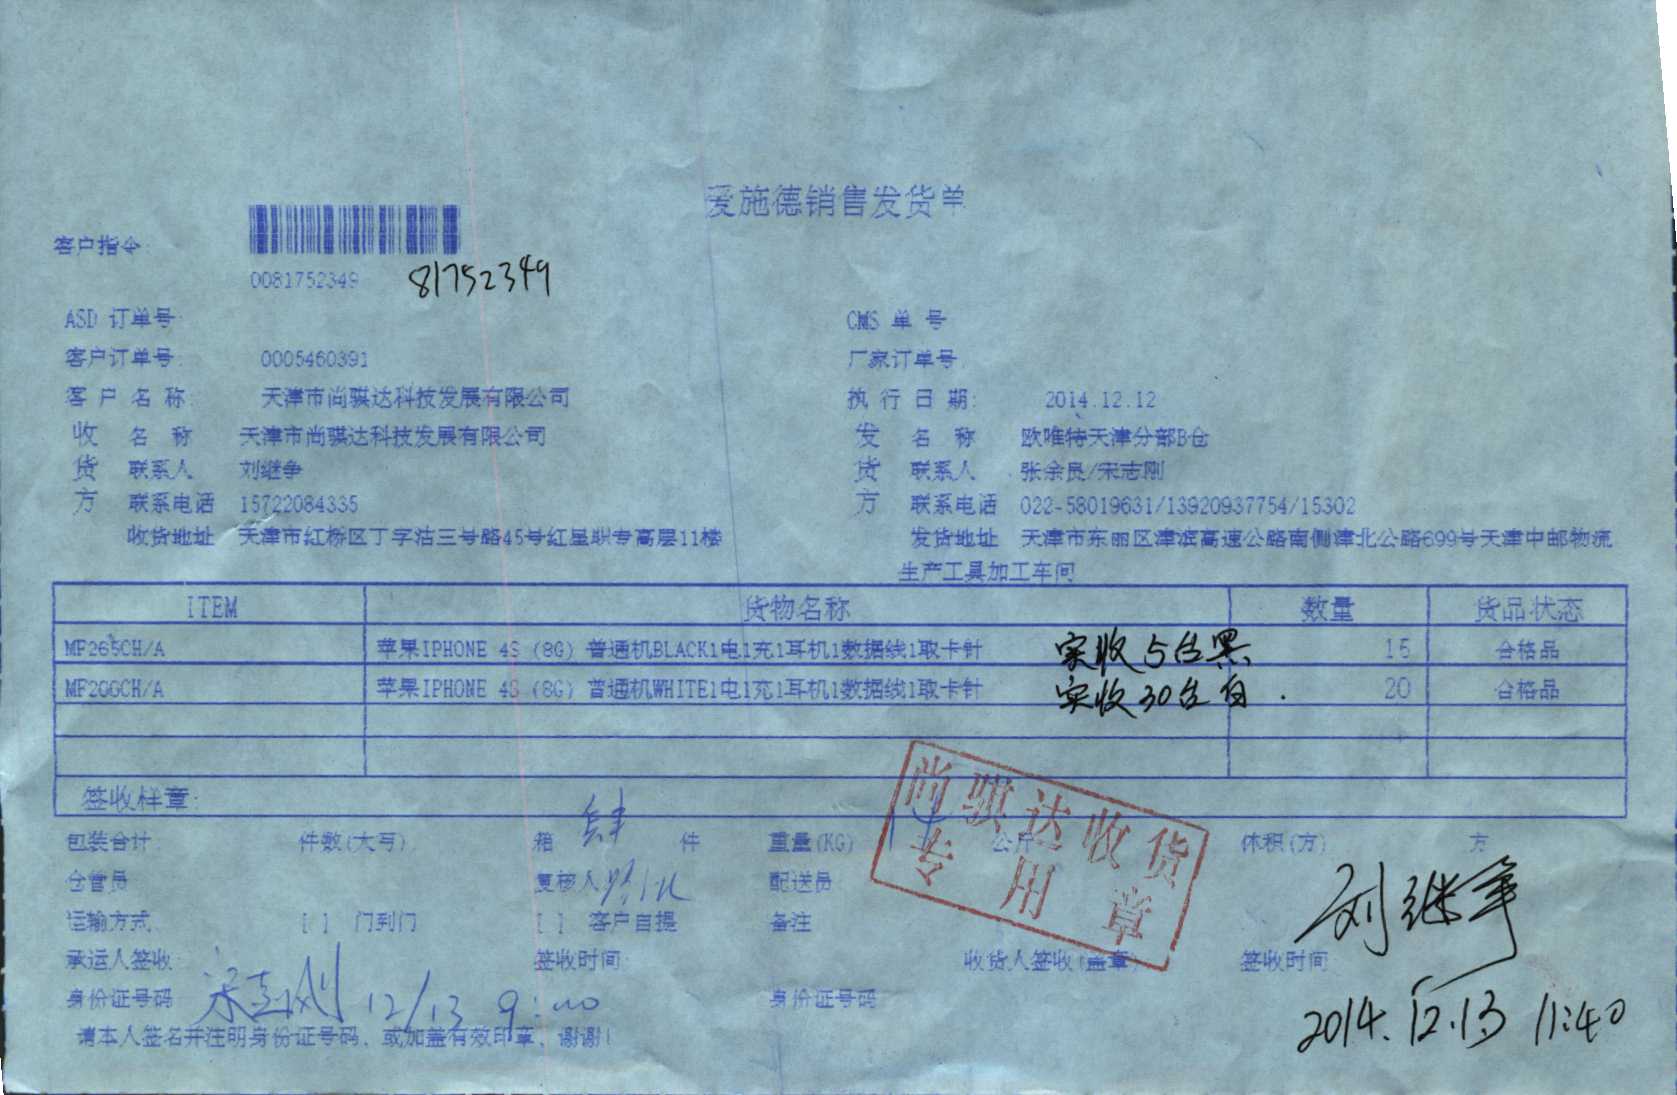 爱施德销售发货单
客户指令:
0081752349 81752349
ASD 订单号: CMS 单 号
客户订单号: 0005460391 厂家订单号
客 户 名 称: 天津市尚骐达科技发展有限公司 执 行 日 期: 2014.12.12
收 名 称 天津市尚骐达科技发展有限公司 发 名 称 欧唯特天津分部B仓
货 联系人 刘继争 货 联系人 张余良/宋志刚
方 联系电话 15722084335 方 联系电话 022-58019631/13920937754/15302
收货地址 天津市红桥区丁字沽三号路45号红星职专高层11楼 发货地址 天津市东丽区津滨高速公路南侧津北公路699号天津中邮物流
生产工具加工车间
ITEM 货物名称 数量 货品状态
MF265CH/A 苹果IPHONE 4S (8G) 普通机BLACK1电1充1耳机1数据线1取卡针 实收5台黑 15 合格品
MF266CH/A 苹果IPHONE 4S (8G) 普通机WHITE1电1充1耳机1数据线1取卡针 实收30台白. 20 合格品
签收样章:
尚骐达收货
专用章
包装合计: 件数(大写) 箱 肆 件 重量(KG) 公斤 体积(方) 方
仓管员 复核人 配送员
运输方式 [ ] 门到门 [ ] 客户自提 备注
刘继争
承运人签收: 签收时间 收货人签收(盖章) 签收时间
身份证号码 宋志刚 12/13 9:00 身份证号码
2014.12.13 11:40
请本人签名并注明身份证号码、或加盖有效印章、谢谢!